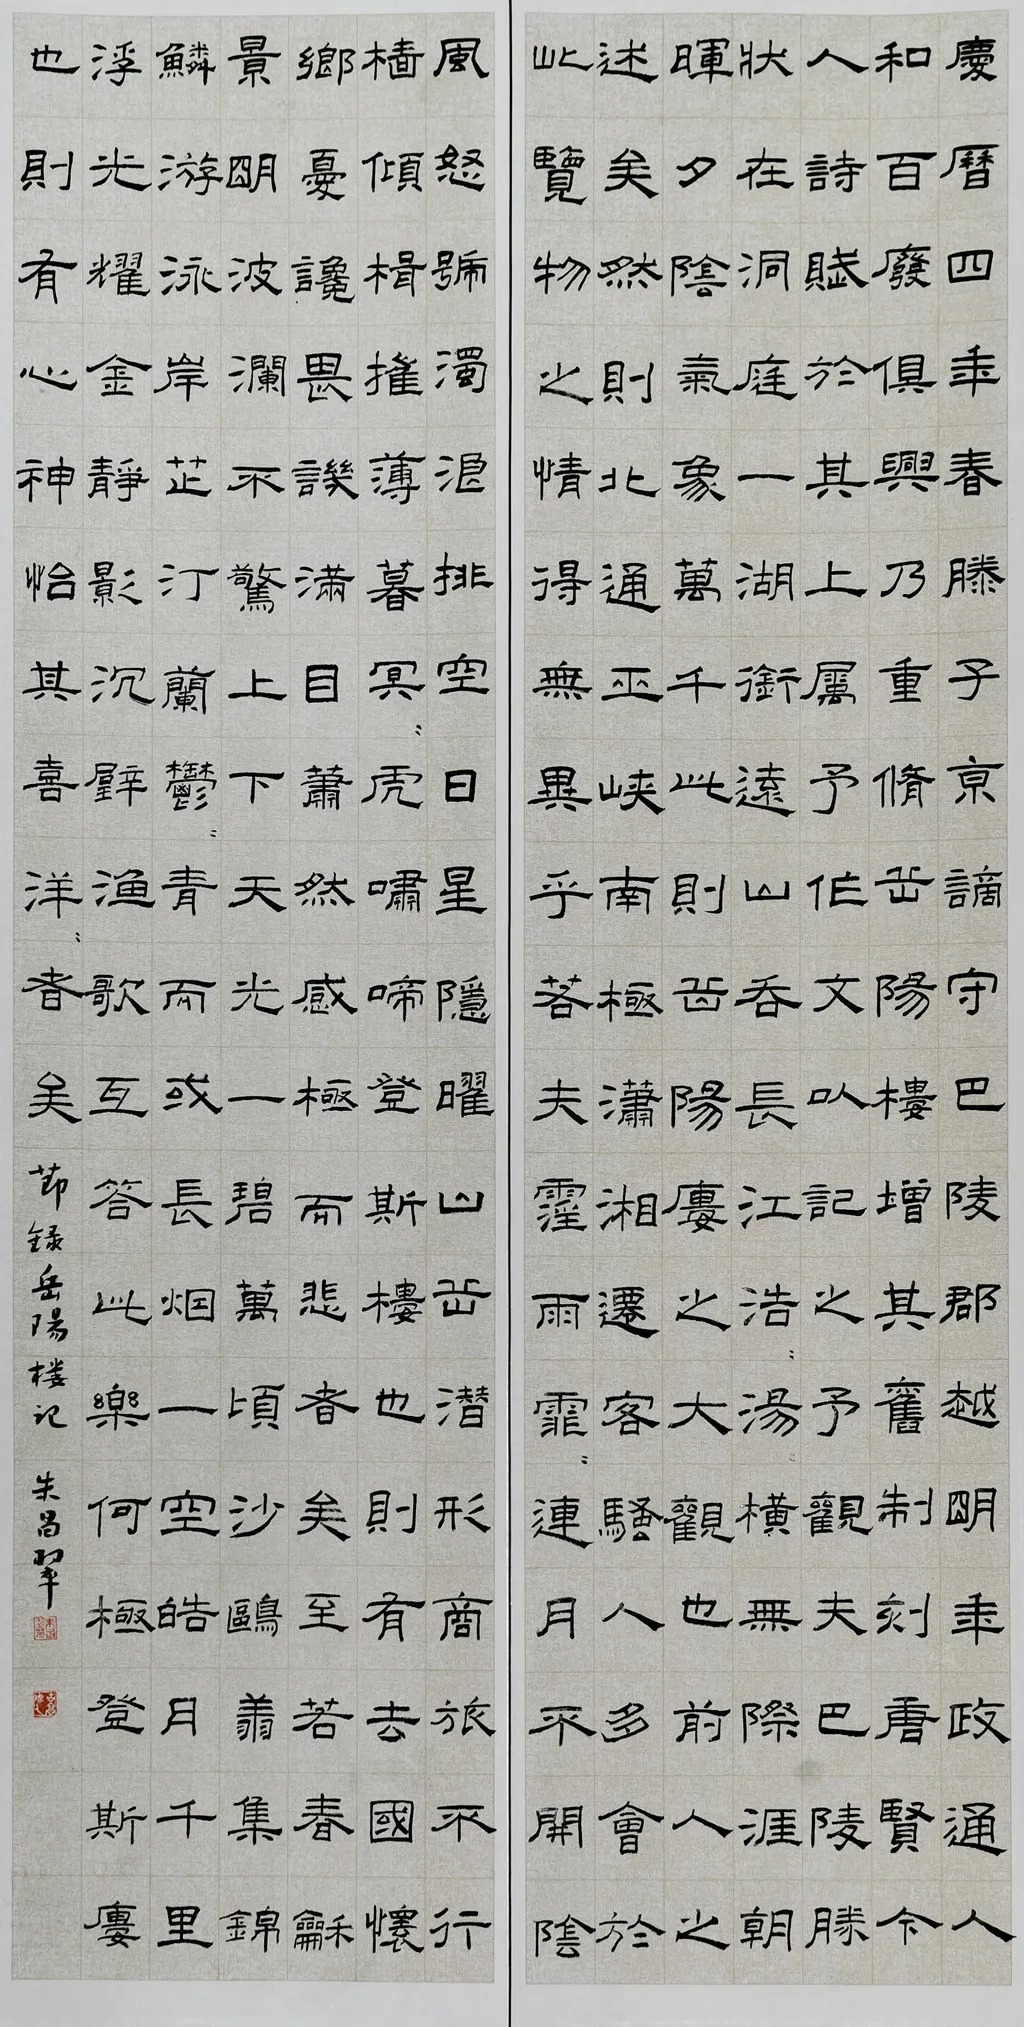 慶曆四年春滕子京謫守巴陵郡越明年政通人
和百廢俱興乃重脩岳陽樓增其舊制刻唐賢今
人詩賦於其上屬予作文以記之予觀夫巴陵勝
狀在洞庭一湖銜遠山吞長江浩〻湯〻橫無際涯朝
暉夕陰氣象萬千此則岳陽樓之大觀也前人之
述矣然則北通巫峽南極瀟湘遷客騷人多會於
此覽物之情得無異乎若夫霪雨霏〻連月不開陰
風怒號濁浪排空日星隱曜山岳潛形商旅不行
檣傾楫摧薄暮冥〻虎嘯啼登斯樓也則有去國懷
鄉憂讒畏譏滿目蕭然感極而悲者矣至若春龢
景明波瀾不驚上下天光一碧萬頃沙鷗翔集錦
鱗游泳岸芷汀蘭鬱〻青而或長烟一空皓月千里
浮光耀金靜影沉璧漁歌互答此樂何極登斯樓
也則有心神怡其喜洋〻者矣 節録岳陽楼记 朱昌翠